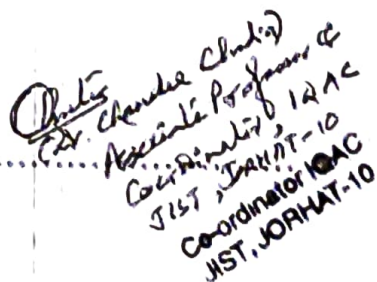 (Dr. Chandra
Associate Professor &
Coordinator, IQAC
JIST, JORHAT-10
Co-ordinator IQAC
JIST, JORHAT-10